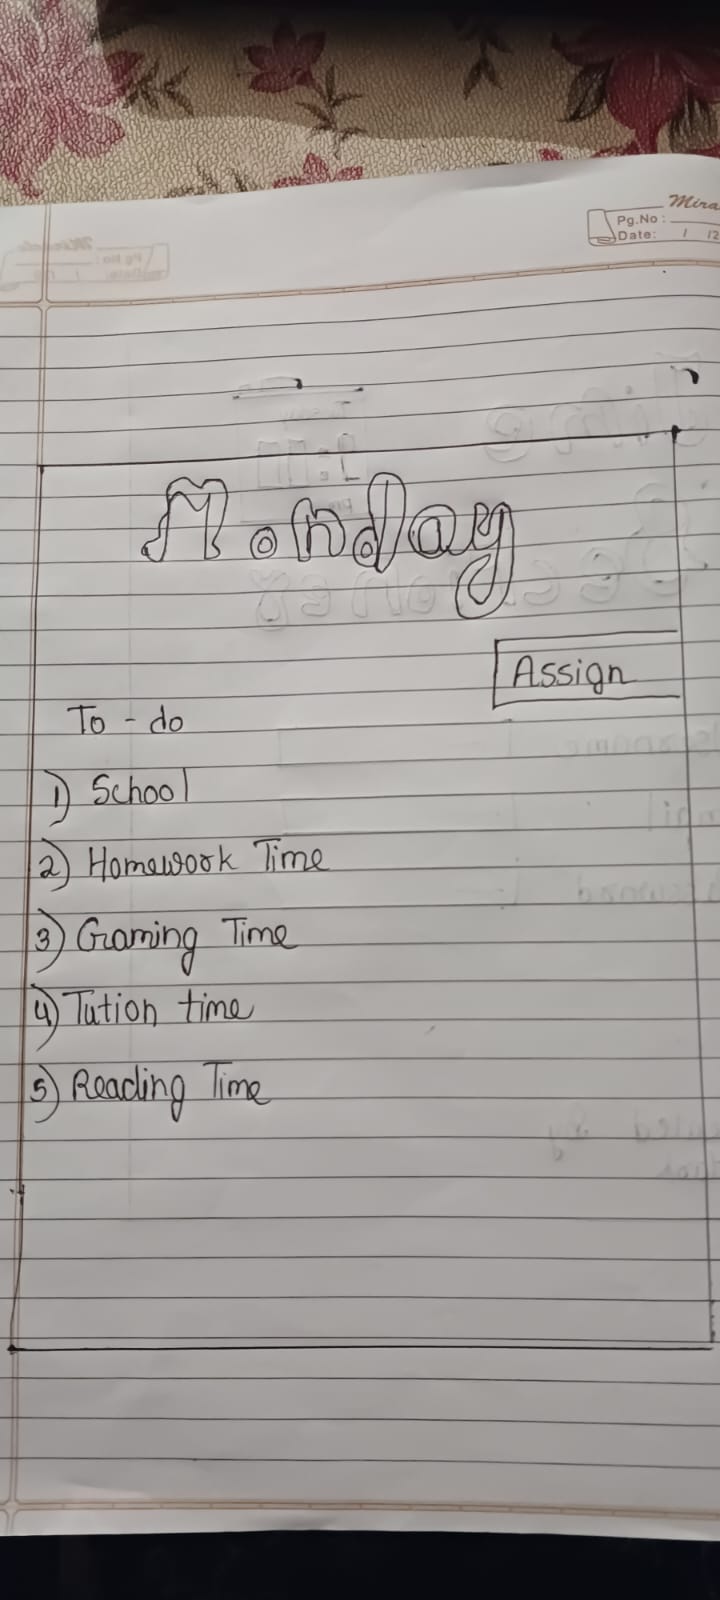 Mira
Pg.No:
Date: / /2
Monday
Assign
To - do
1) School
2) Homework Time
3) Graming Time
4) Tution time
5) Reading Time